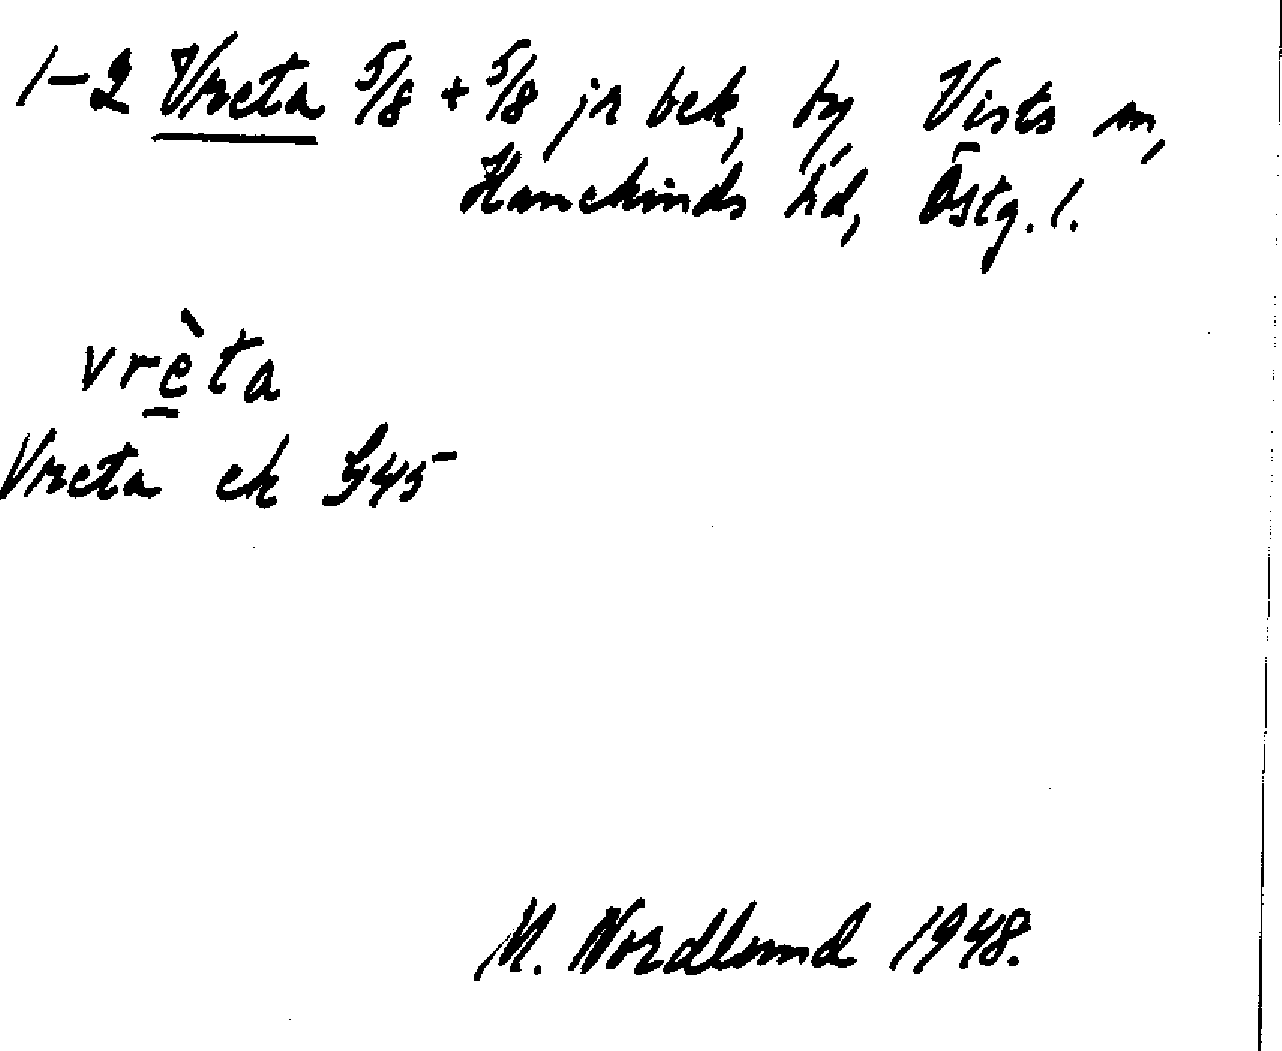 1-2 Vreta 5/8 + 5/8 jr bek, by, Vists sn,
Hanekinds hd, Östg. l.
vrèta
Vreta ek G45
M. Nordlund 1948.